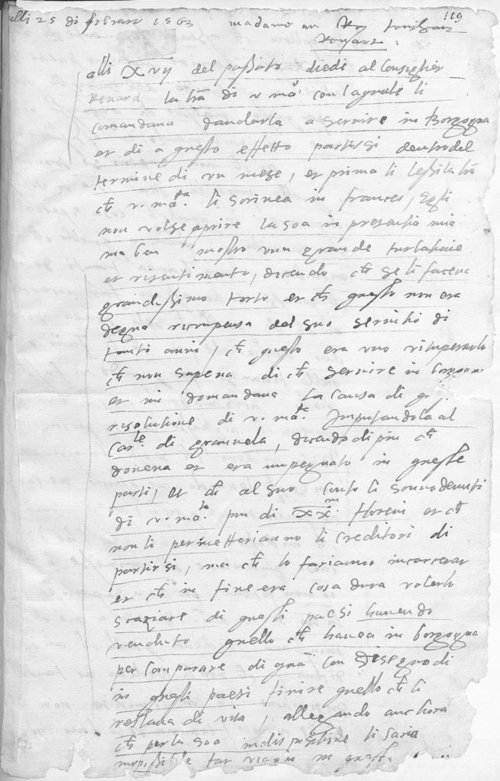 alli 25 di febraro 1563 madama
119
Renard.
alli XVIJ del passato diedi al Consiglier
Renard la lra di v mta con la quale li
comandava d'andarla a servire in Borgogna
et di a questo effetto partirsi dentro del
termine di un mese, et prima li lessi la lra
ch v. mta. li scrivea in francese, Egli
non volse aprire la soa in presentia mia
ma ben mostro una grande turbatione
et risentimento, dicendo ch se li faceva
grandissimo torto et ch questo non era
degna ricompensa del suo servitio di
tanti anni, ch questo era uno
ch non sapeva di ch servire in borgogna
et mi domandava la causa di
resolutione di v. mta. Imputandola al
Carle. di granvela, dicendo di piu ch
doveva et era impegnato in queste
parti, et ch al suo conto li sono debiti
di v. mta piu di XXm. fioreni et ch
non li permetteriano li creditori di
partirsi, ma ch lo fariano incarcerar
et ch in fine era cosa dura volerlo
scaziare di questi paesi havendo
venduto quello ch havea in borgogna
per comparare di qua con disegno di
in questi paesi finire quello ch li
restava di vita, allegando anchora
ch per la soa indispositione li saria
impossibile far viagio in questa